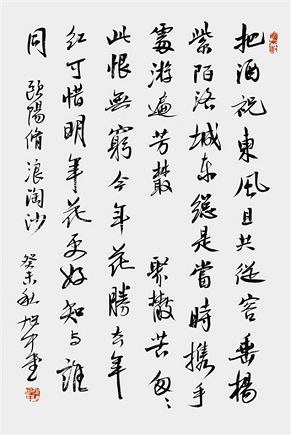 把酒祝東風且共從容垂楊
紫陌洛城東總是當時攜手
處游遍芳叢 聚散苦匆〻
此恨無窮今年花勝去年
紅可惜明年花更好知與誰
同 歐陽脩浪淘沙 癸未秋